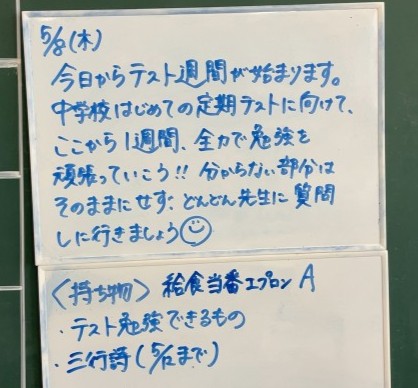 5/8(木)
今日からテスト週間が始まります。
中学校はじめての定期テストに向けて、
ここから1週間、全力で勉強を
頑張っていこう!! 分からない部分は
そのままにせず、どんどん先生に質問
しに行きましょう
〈持ち物〉 給食当番エプロン A
・テスト勉強できるもの
・三行詩(5/12まで)